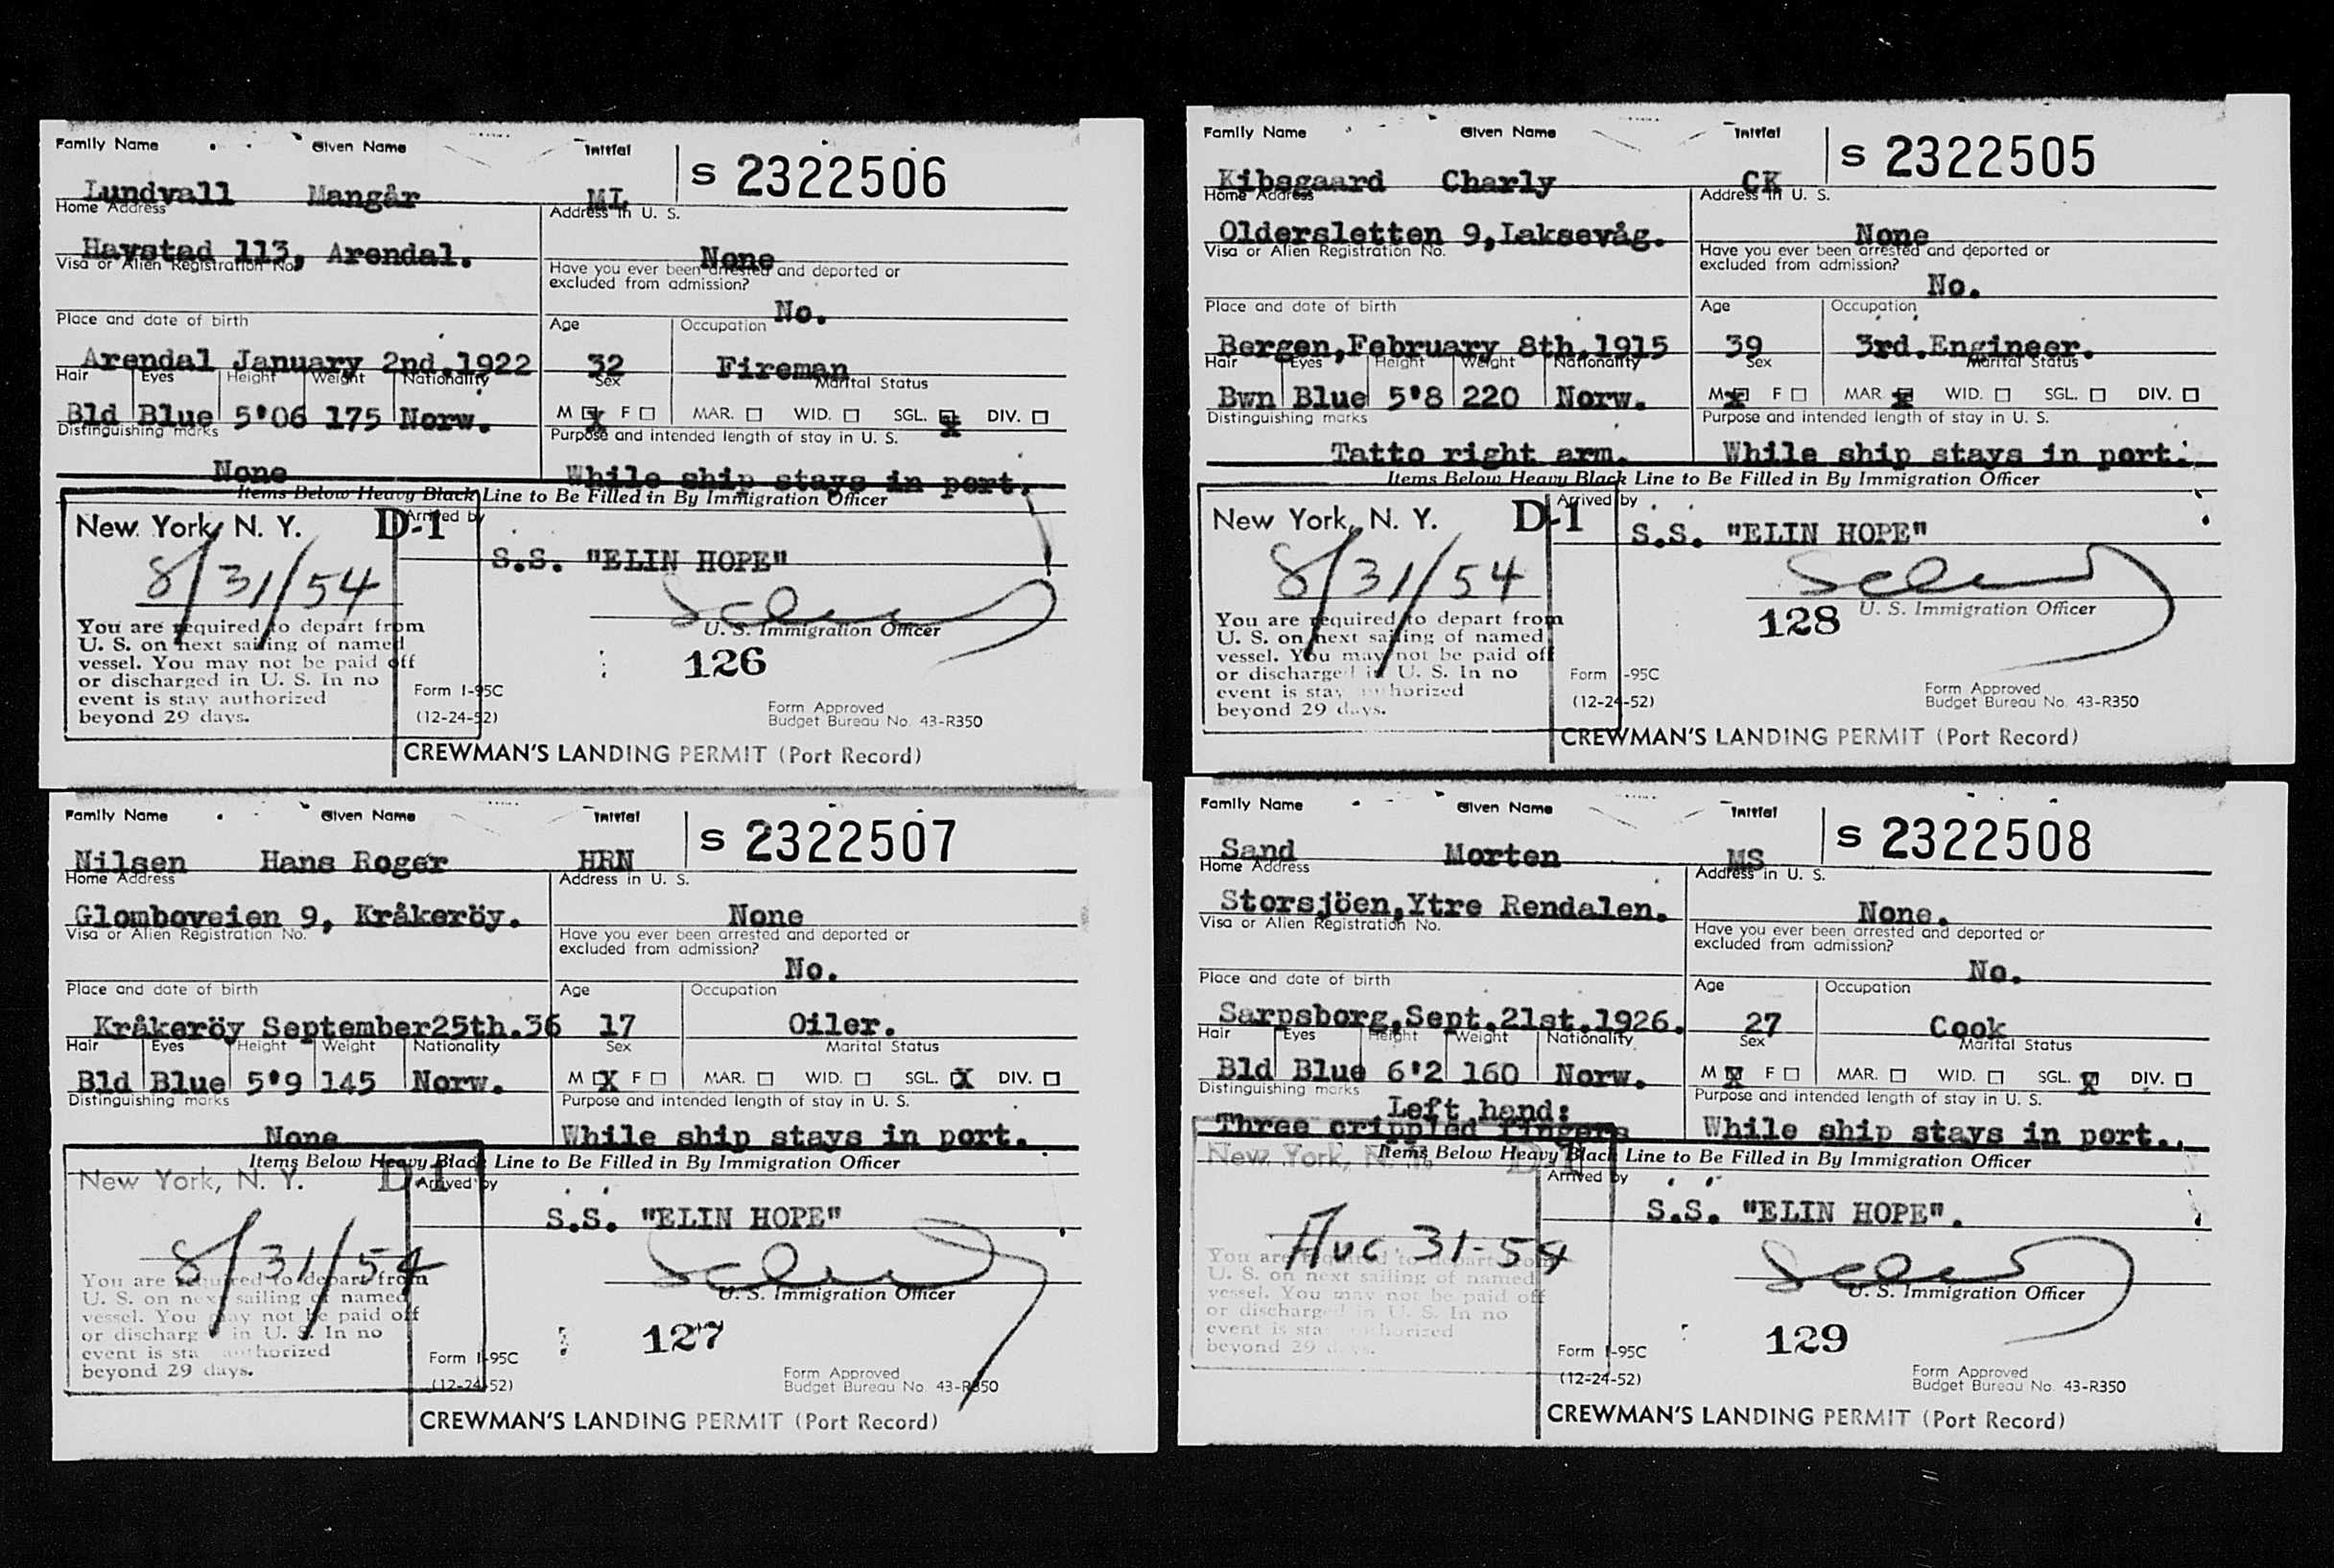 Family Name Given Name Initial
S 2322506
Lundvall Mangår ML
Home Address Address in U. S.
Havstad 113, Arendal. None
Visa or Alien Registration No. Have you ever been arrested and deported or
excluded from admission?
No.
Place and date of birth Age Occupation
Arendal January 2nd.1922 32 Fireman
Hair Eyes Height Weight Nationality Sex Marital Status
Bld Blue 5'06 175 Norw. M X F MAR. WID. SGL. X DIV.
Distinguishing marks Purpose and intended length of stay in U. S.
None While ship stays in port.
Items Below Heavy Black Line to Be Filled in By Immigration Officer
New York, N. Y. D-1 Arrived by
S.S. "ELIN HOPE"
8/31/54
You are required to depart from
U. S. on next sailing of named
vessel. You may not be paid off
or discharged in U. S. In no
event is stay authorized
beyond 29 days.
U. S. Immigration Officer
126
Form I-95C
(12-24-52)
Form Approved
Budget Bureau No. 43-R350
CREWMAN'S LANDING PERMIT (Port Record)
Family Name Given Name Initial
S 2322505
Kibsgaard Charly CK
Home Address Address in U. S.
Oldersletten 9,Laksevåg. None
Visa or Alien Registration No. Have you ever been arrested and deported or
excluded from admission?
No.
Place and date of birth Age Occupation
Bergen,February 8th.1915 39 3rd.Engineer.
Hair Eyes Height Weight Nationality Sex Marital Status
Bwn Blue 5'8 220 Norw. M X F MAR. X WID. SGL. DIV.
Distinguishing marks Purpose and intended length of stay in U. S.
Tatto right arm. While ship stays in port.
Items Below Heavy Black Line to Be Filled in By Immigration Officer
New York, N. Y. D-1 Arrived by
S.S. "ELIN HOPE"
8/31/54
You are required to depart from
U. S. on next sailing of named
vessel. You may not be paid off
or discharged in U. S. In no
event is stay authorized
beyond 29 days.
U. S. Immigration Officer
128
Form I-95C
(12-24-52)
Form Approved
Budget Bureau No. 43-R350
CREWMAN'S LANDING PERMIT (Port Record)
Family Name Given Name Initial
S 2322507
Nilsen Hans Roger HRN
Home Address Address in U. S.
Glomboveien 9, Kråkeröy. None
Visa or Alien Registration No. Have you ever been arrested and deported or
excluded from admission?
No.
Place and date of birth Age Occupation
Kråkeröy September25th.36 17 Oiler.
Hair Eyes Height Weight Nationality Sex Marital Status
Bld Blue 5'9 145 Norw. M X F MAR. WID. SGL. X DIV.
Distinguishing marks Purpose and intended length of stay in U. S.
None While ship stays in port.
Items Below Heavy Black Line to Be Filled in By Immigration Officer
New York, N. Y. D-1 Arrived by
S.S. "ELIN HOPE"
8/31/54
You are required to depart from
U. S. on next sailing of named
vessel. You may not be paid off
or discharged in U. S. In no
event is stay authorized
beyond 29 days.
U. S. Immigration Officer
127
Form I-95C
(12-24-52)
Form Approved
Budget Bureau No. 43-R350
CREWMAN'S LANDING PERMIT (Port Record)
Family Name Given Name Initial
S 2322508
Sand Morten MS
Home Address Address in U. S.
Storsjöen,Ytre Rendalen. None.
Visa or Alien Registration No. Have you ever been arrested and deported or
excluded from admission?
No.
Place and date of birth Age Occupation
Sarpsborg,Sept.21st.1926. 27 Cook
Hair Eyes Height Weight Nationality Sex Marital Status
Bld Blue 6'2 160 Norw. M X F MAR. WID. SGL. X DIV.
Distinguishing marks Purpose and intended length of stay in U. S.
Left hand:
Three crippled fingers While ship stays in port.
Items Below Heavy Black Line to Be Filled in By Immigration Officer
New York, N. Y. D-1 Arrived by
S.S. "ELIN HOPE".
Aug 31-54
You are required to depart from
U. S. on next sailing of named
vessel. You may not be paid off
or discharged in U. S. In no
event is stay authorized
beyond 29 days.
U. S. Immigration Officer
129
Form I-95C
(12-24-52)
Form Approved
Budget Bureau No. 43-R350
CREWMAN'S LANDING PERMIT (Port Record)